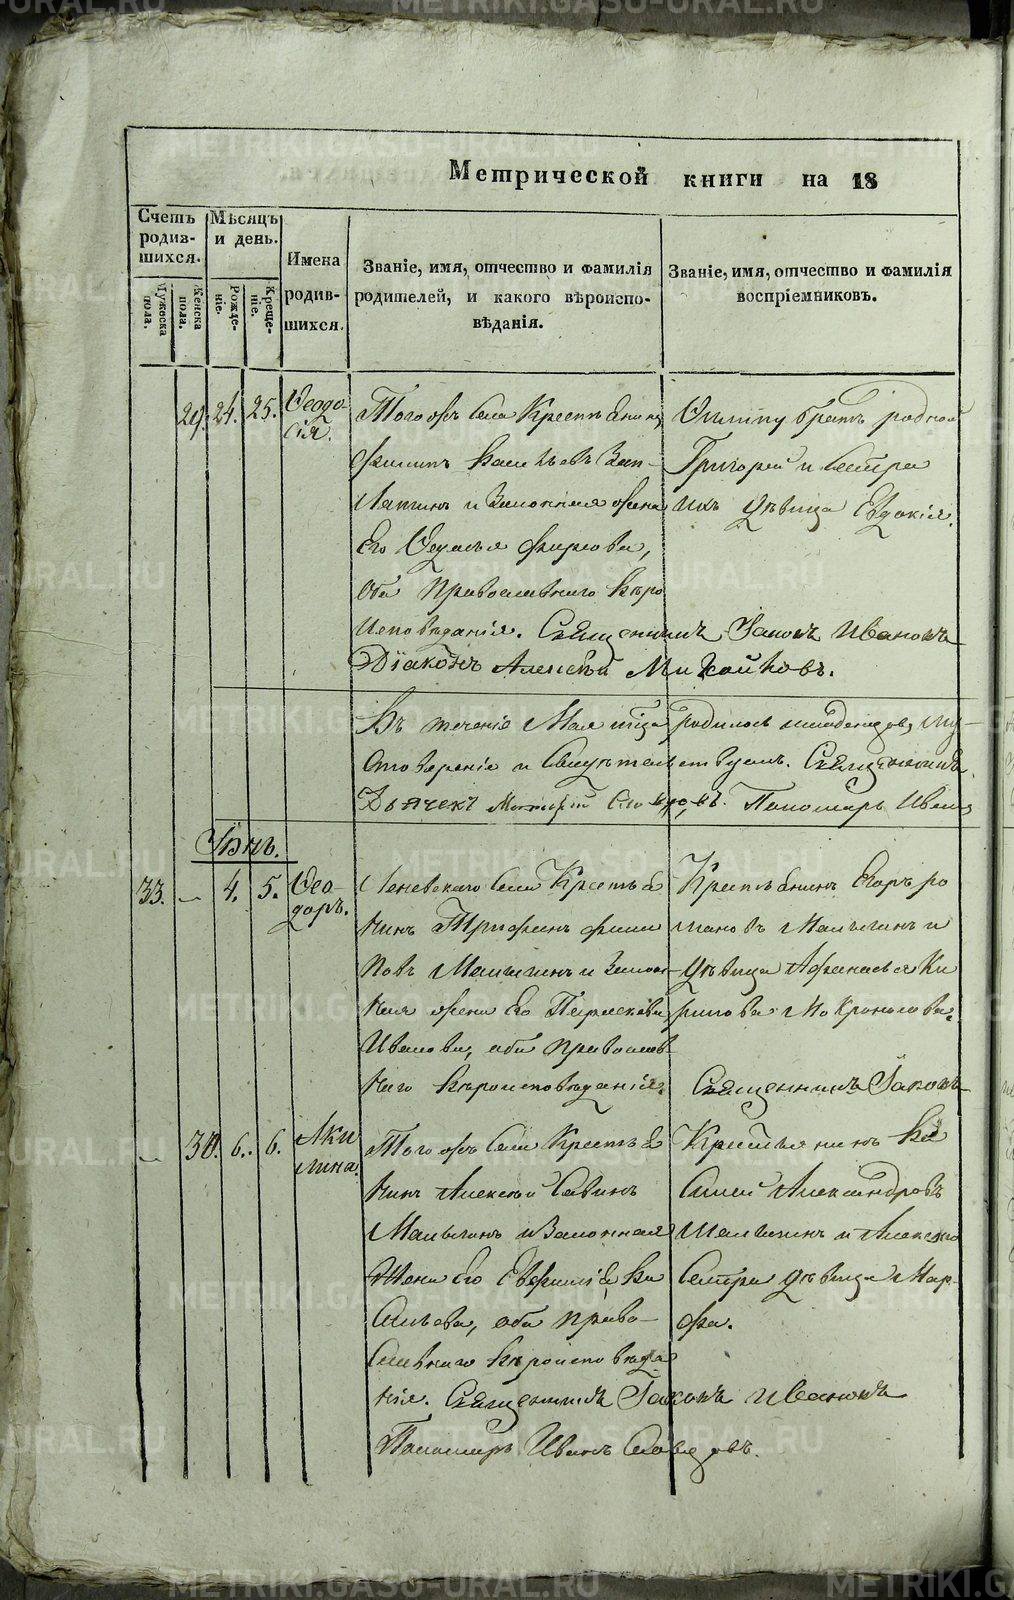 Метрической книги на 18
Счетъ родив-шихся.
Мужеска пола.
Женска пола.
Мѣсяцъ и день.
Рожде-ніе.
Креще-ніе.
Имена родив-шихся.
Званіе, имя, отчество и фамилія
родителей, и какого вѣроиспо-
вѣданія.
Званіе, имя, отчество и фамилія
воспріемниковъ.
29. 24. 25. Ѳеодо-
сія.
Тогожъ Села Крестьянинъ
Филипъ Васильевъ
и Законная жена
Его Ѳирсова,
Оба Православнаго Вѣро
Исповѣданія. Священникъ Іаковъ Ивановъ
Діаконъ Алексѣй
братъ родной
Григорей и Сестра
ихъ дѣвица Евдокія.
Въ теченіе Мая м̃ца родилось младенцовъ
и Свидѣтельствуемъ. Священникъ
Дьячекъ Пономарь Иванъ
Іюнь.
33. – 4. 5. Ѳео-
доръ.
Леневскаго Села Крестья
нинъ Трифонъ Фили
повъ Малыгинъ и Закон-
ная жена Его Параскева
Иванова, оба православ
наго Вѣроисповѣданія.
Крестьянинъ Егоръ Ро
мановъ Малыгинъ и
дѣвица Афанасья Ки
рилова Мокроносова.
Священникъ Іаковъ
– 30. 6. 6. Аки
лина.
Тогожъ Села Крестья
нинъ Алексѣй Савинъ
Малыгинъ и Законная
Жена Его Евфимія Ва
сильева, оба право-
славнаго Вѣроисповѣда
нія. Священникъ Іаковъ Ивановъ
Пономарь Иванъ
Крестьянинъ Ва
силей Александровъ
Малыгинъ и Алексѣя
Сестра дѣвица Мар-
фа.
METRIKI.GASO-URAL.RU